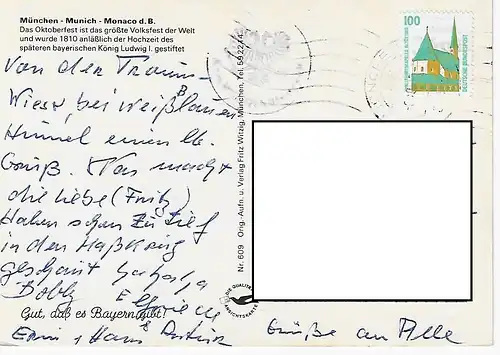 München - Munich - Monaco d. B.
Das Oktoberfest ist das größte Volksfest der Welt
und wurde 1810 anläßlich der Hochzeit des
späteren bayerischen König Ludwig I. gestiftet
Von der Traum-
Wiese, bei weißblauen
Himmel einen lb.
Gruß. Was macht
die Liebe (Fritz)
Haben schon zu tief
in den Maßkrug
geschaut
Bobby
Gut, daß es Bayern gibt!
Erni + Hans
Grüße an Alle
Nr. 609 Orig.-Aufn. u. Verlag Fritz Witzig, München, Tel. 59 22 14
100
DEUTSCHE BUNDESPOST
ALTÖTTING